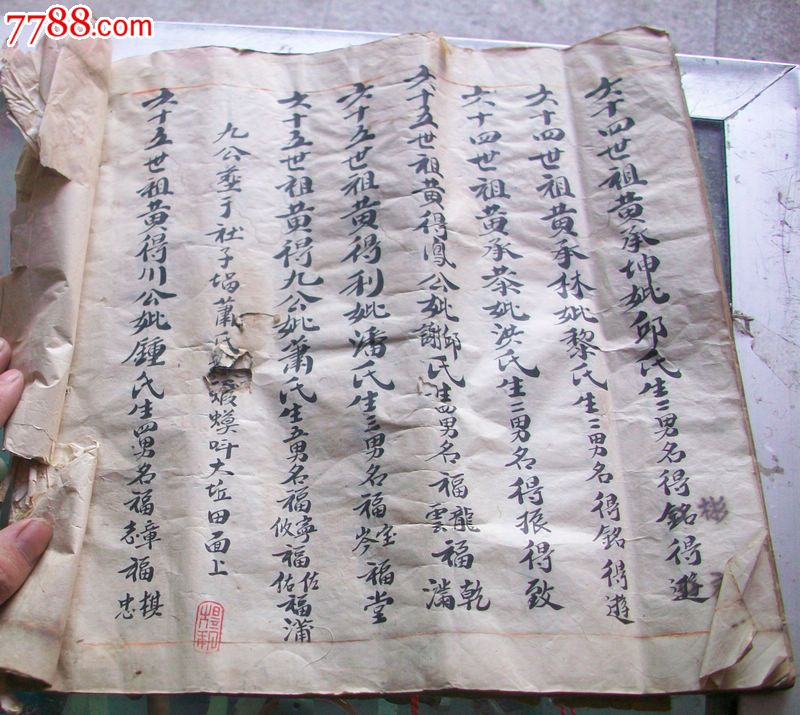 7788.com
六十四世祖黄承坤妣邱氏生二男名得銘得遊
六十四世祖黄承林妣黎氏生二男名得銘得遊
六十四世祖黄承茶妣洪氏生二男名得振得致
六十五世祖黄得鳳公妣邱謝氏生四男名福龍雲福乾滿
六十五世祖黄得利妣潘氏生三男名福宝岑福堂
六十五世祖黄得九公妣蕭氏生五男名福寧攸福佐佑福蒲
九公塟于社子塭蕭氏 蝦蟆呌大坵田面上
六十五世祖黄得川公妣鍾氏生四男名福章志福棋忠
彬